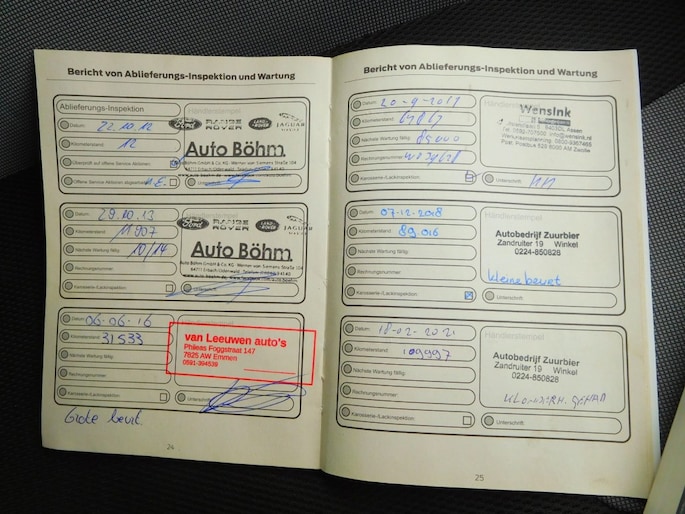 Bericht von Ablieferungs-Inspektion und Wartung
Ablieferungs-Inspektion
Datum: 22.10.12
Kilometerstand: 12
Überprüft auf offene Service Aktionen:
Offene Service Aktionen abgearbeitet:
Ford RANGE ROVER LAND-ROVER JAGUAR
Auto Böhm
Auto Böhm GmbH & Co. KG · Werner von Siemens Straße 104
Datum: 29.10.13
Kilometerstand: 11907
Nächste Wartung fällig: 10/14
Rechnungsnummer:
Karosserie-/Lackinspektion:
Ford RANGE ROVER LAND-ROVER JAGUAR
Auto Böhm
Auto Böhm GmbH & Co. KG · Werner von Siemens Straße 104
Datum: 06-06-16
Kilometerstand: 31533
Nächste Wartung fällig:
Rechnungsnummer:
Karosserie-/Lackinspektion:
van Leeuwen auto's
Phileas Foggstraat 147
7825 AW Emmen
0591-394539
Unterschrift:
Grote beurt.
24
Bericht von Ablieferungs-Inspektion und Wartung
Datum: 20-9-2017
Kilometerstand:
Nächste Wartung fällig:
Rechnungsnummer:
Karosserie-/Lackinspektion:
Händlerstempel
Wensink
Unterschrift:
Datum: 07-12-2018
Kilometerstand: 89.016
Nächste Wartung fällig:
Rechnungsnummer:
Karosserie-/Lackinspektion:
Händlerstempel
Autobedrijf Zuurbier
Zandruiter 19 Winkel
0224-850828
kleine beurt
Unterschrift:
Datum: 18-02-2021
Kilometerstand: 109997
Nächste Wartung fällig:
Rechnungsnummer:
Karosserie-/Lackinspektion:
Händlerstempel
Autobedrijf Zuurbier
Zandruiter 19 Winkel
0224-850828
Unterschrift:
25